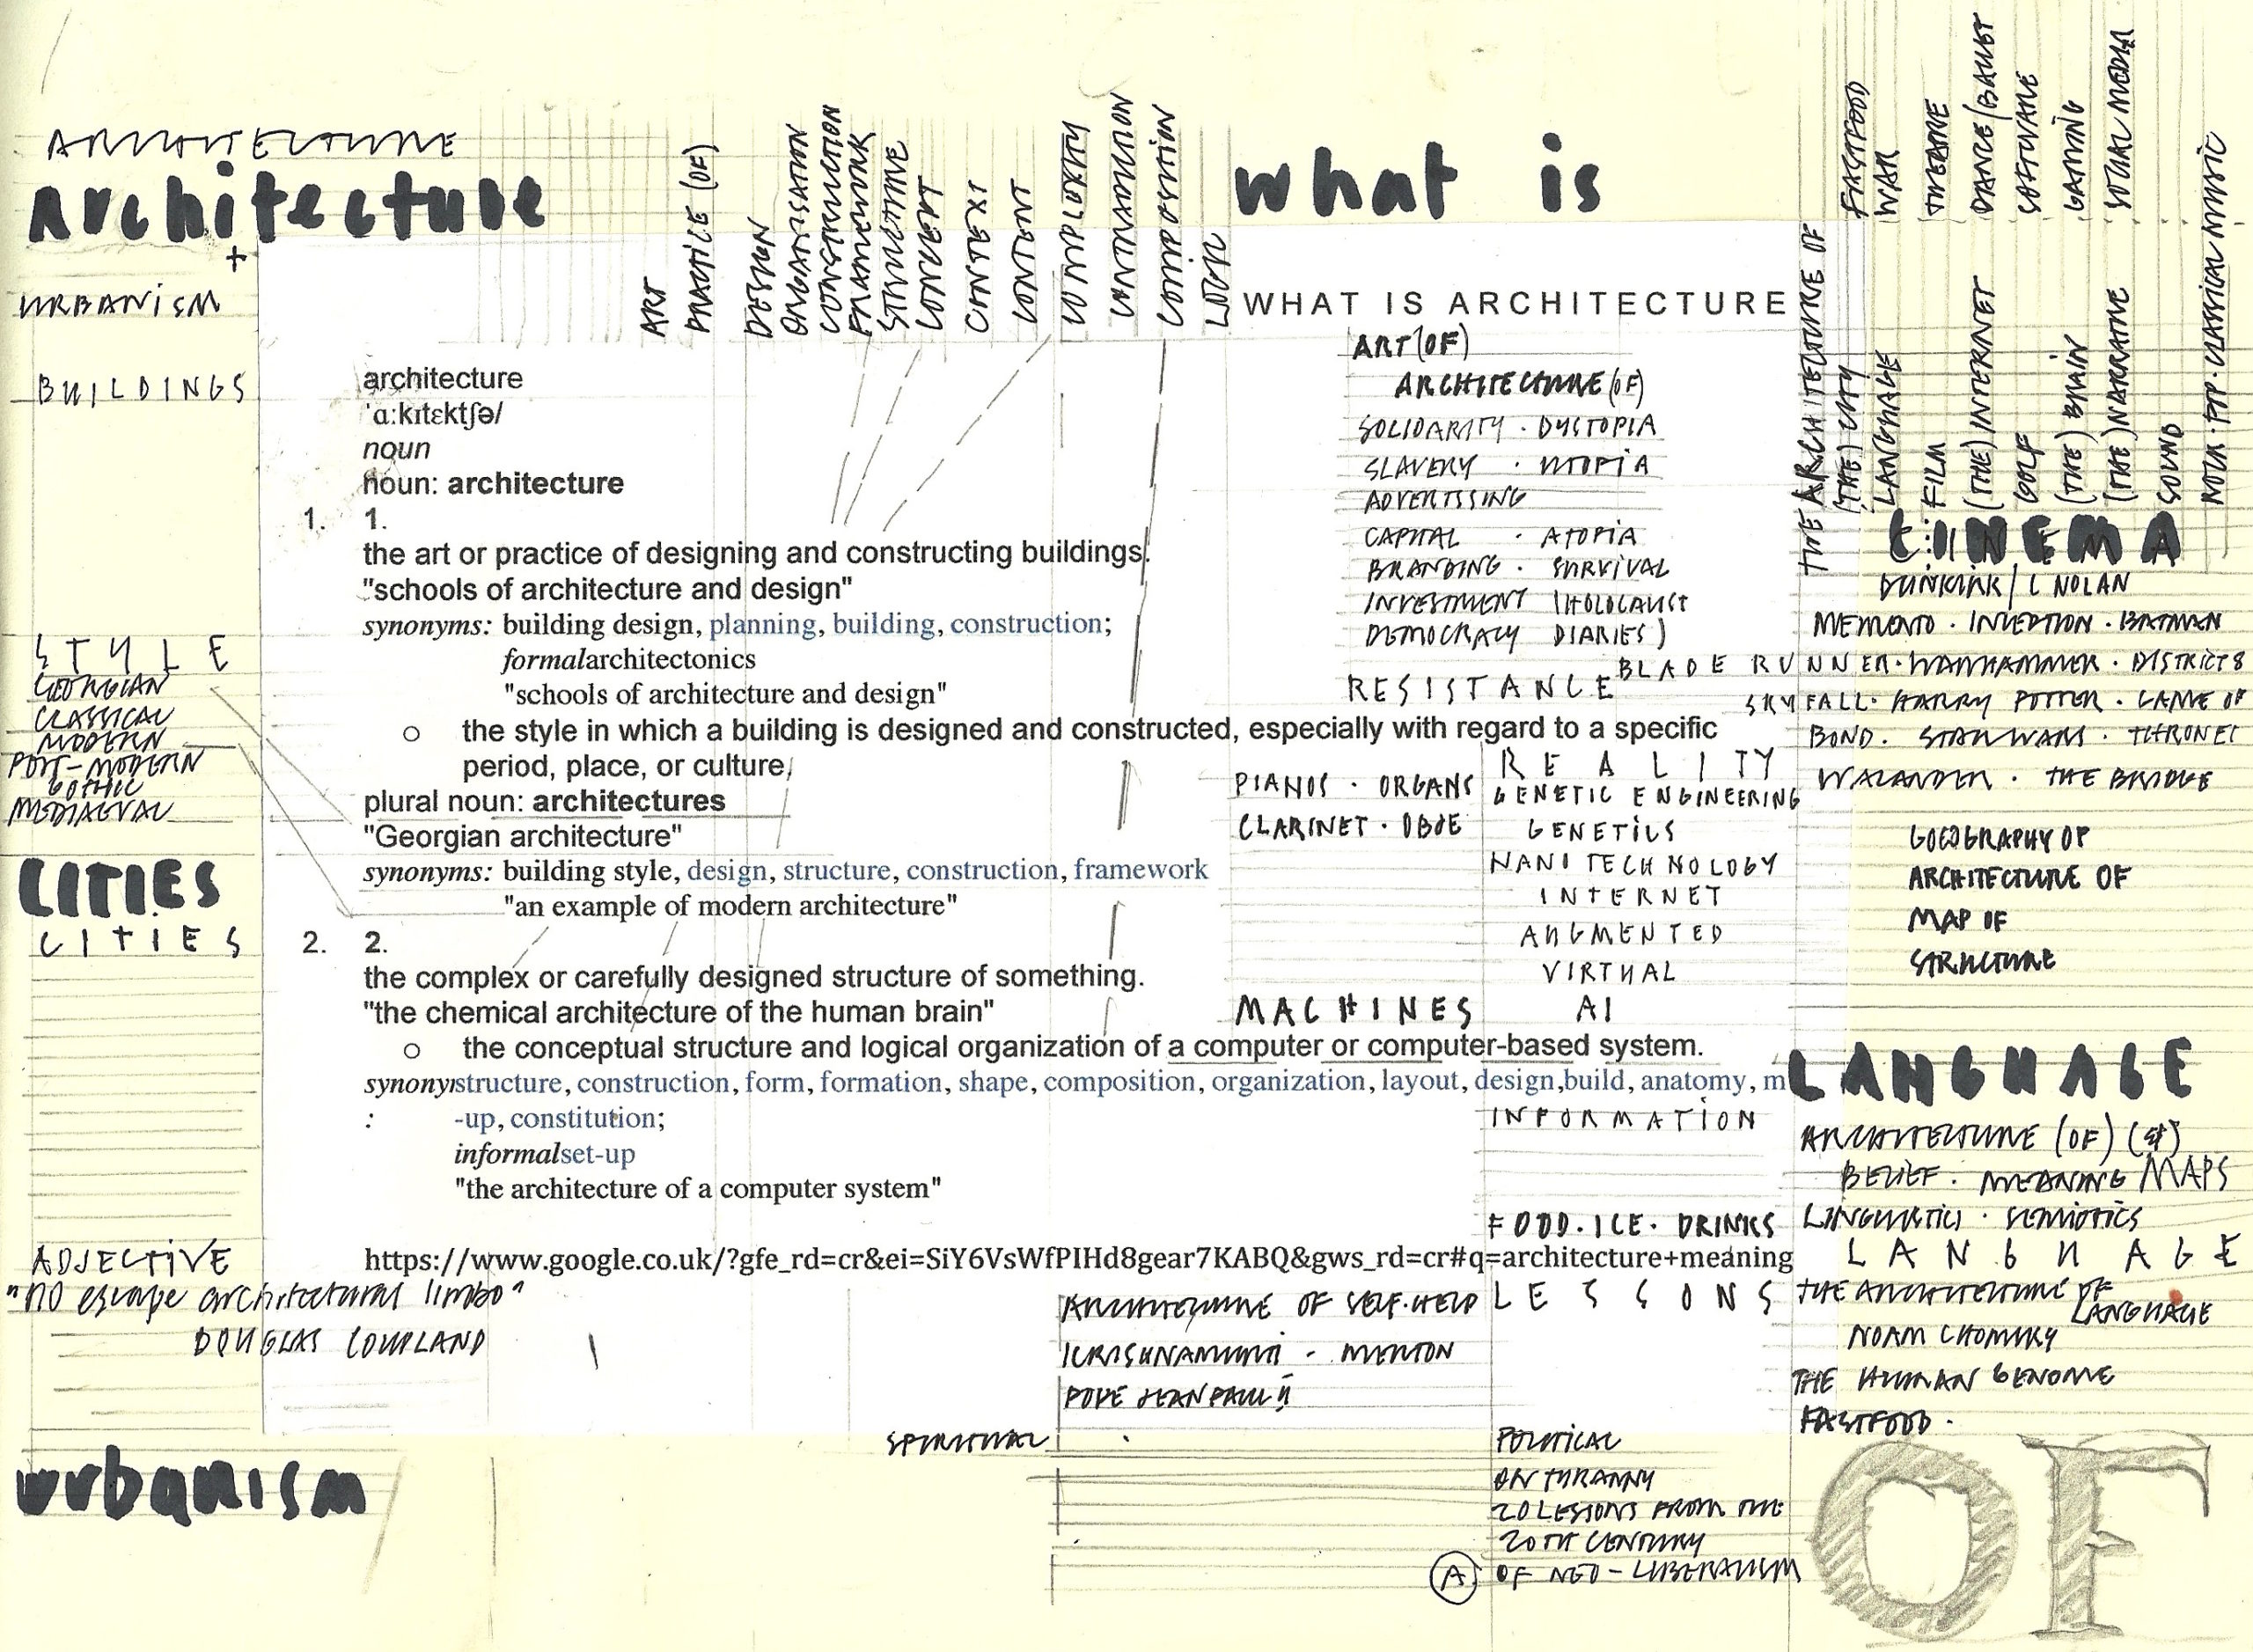 ARCHITECTURE
architecture
+
URBANISM
BUILDINGS
STYLE
GEORGIAN
CLASSICAL
MODERN
POST-MODERN
GOTHIC
MEDIAEVAL
CITIES
CITIES
ADJECTIVE
"no escape architectural limbo"
DOUGLAS COUPLAND
urbanism
ART
PRACTICE (OF)
DESIGN
ORGANISATION
CONSTRUCTION
FRAMEWORK
STRUCTURE
CONCEPT
CONTEXT
CONTENT
COMPLEXITY
CONTRADICTION
COMPOSITION
LOGIC
what is
WHAT IS ARCHITECTURE
architecture
ˈɑːkɪtɛktʃə/
noun
noun: architecture
1. 1.
the art or practice of designing and constructing buildings.
"schools of architecture and design"
synonyms: building design, planning, building, construction;
formalarchitectonics
"schools of architecture and design"
o the style in which a building is designed and constructed, especially with regard to a specific
period, place, or culture.
plural noun: architectures
"Georgian architecture"
synonyms: building style, design, structure, construction, framework
"an example of modern architecture"
2. 2.
the complex or carefully designed structure of something.
"the chemical architecture of the human brain"
o the conceptual structure and logical organization of a computer or computer-based system.
synonystructure, construction, form, formation, shape, composition, organization, layout, design,build, anatomy, m
: -up, constitution;
informalset-up
"the architecture of a computer system"
https://www.google.co.uk/?gfe_rd=cr&ei=SiY6VsWfPIHd8gear7KABQ&gws_rd=cr#q=architecture+meaning
ART (OF)
ARCHITECTURE (OF)
SOLIDARITY · DYSTOPIA
SLAVERY · UTOPIA
ADVERTISING
CAPITAL · ATOPIA
BRANDING · SURVIVAL
INVESTMENT (HOLOCAUST
DEMOCRACY DIARIES)
RESISTANCE
PIANOS · ORGANS
CLARINET · OBOE
REALITY
GENETIC ENGINEERING
GENETICS
NANOTECHNOLOGY
INTERNET
AUGMENTED
VIRTUAL
MACHINES
AI
INFORMATION
FOOD · ICE · DRINKS
LESSONS
ARCHITECTURE OF SELF-HELP
KRISHNAMURTI - MERTON
POPE JEAN PAUL II
SPIRITUAL
POLITICAL
ON TYRANNY
20 LESSONS FROM THE
20TH CENTURY
A OF NEO-LIBERALISM
THE ARCHITECTURE OF
FASTFOOD
WAR
THEATRE
DANCE/BALLET
SOFTWARE
GAMING
SOCIAL MEDIA
(THE) CITY
LANGUAGE
FILM
(THE) INTERNET
GOLF
(THE) BRAIN
(THE) NARRATIVE
SOUND
ROCK · POP · CLASSICAL MUSIC
CINEMA
DUNKIRK / C NOLAN
MEMENTO · INCEPTION · BATMAN
BLADE RUNNER · WARHAMMER · DISTRICT 8
SKYFALL · HARRY POTTER · GAME OF
BOND · STAR WARS · THRONES
WALANDER · THE BRIDGE
GEOGRAPHY OF
ARCHITECTURE OF
MAP OF
STRUCTURE
LANGUAGE
ARCHITECTURE (OF) (&)
BELIEF · MEANING MAPS
LINGUISTICS · SEMIOTICS
LANGUAGE
THE ARCHITECTURE OF
LANGUAGE
NOAM CHOMSKY
THE HUMAN GENOME
FASTFOOD ·
OF